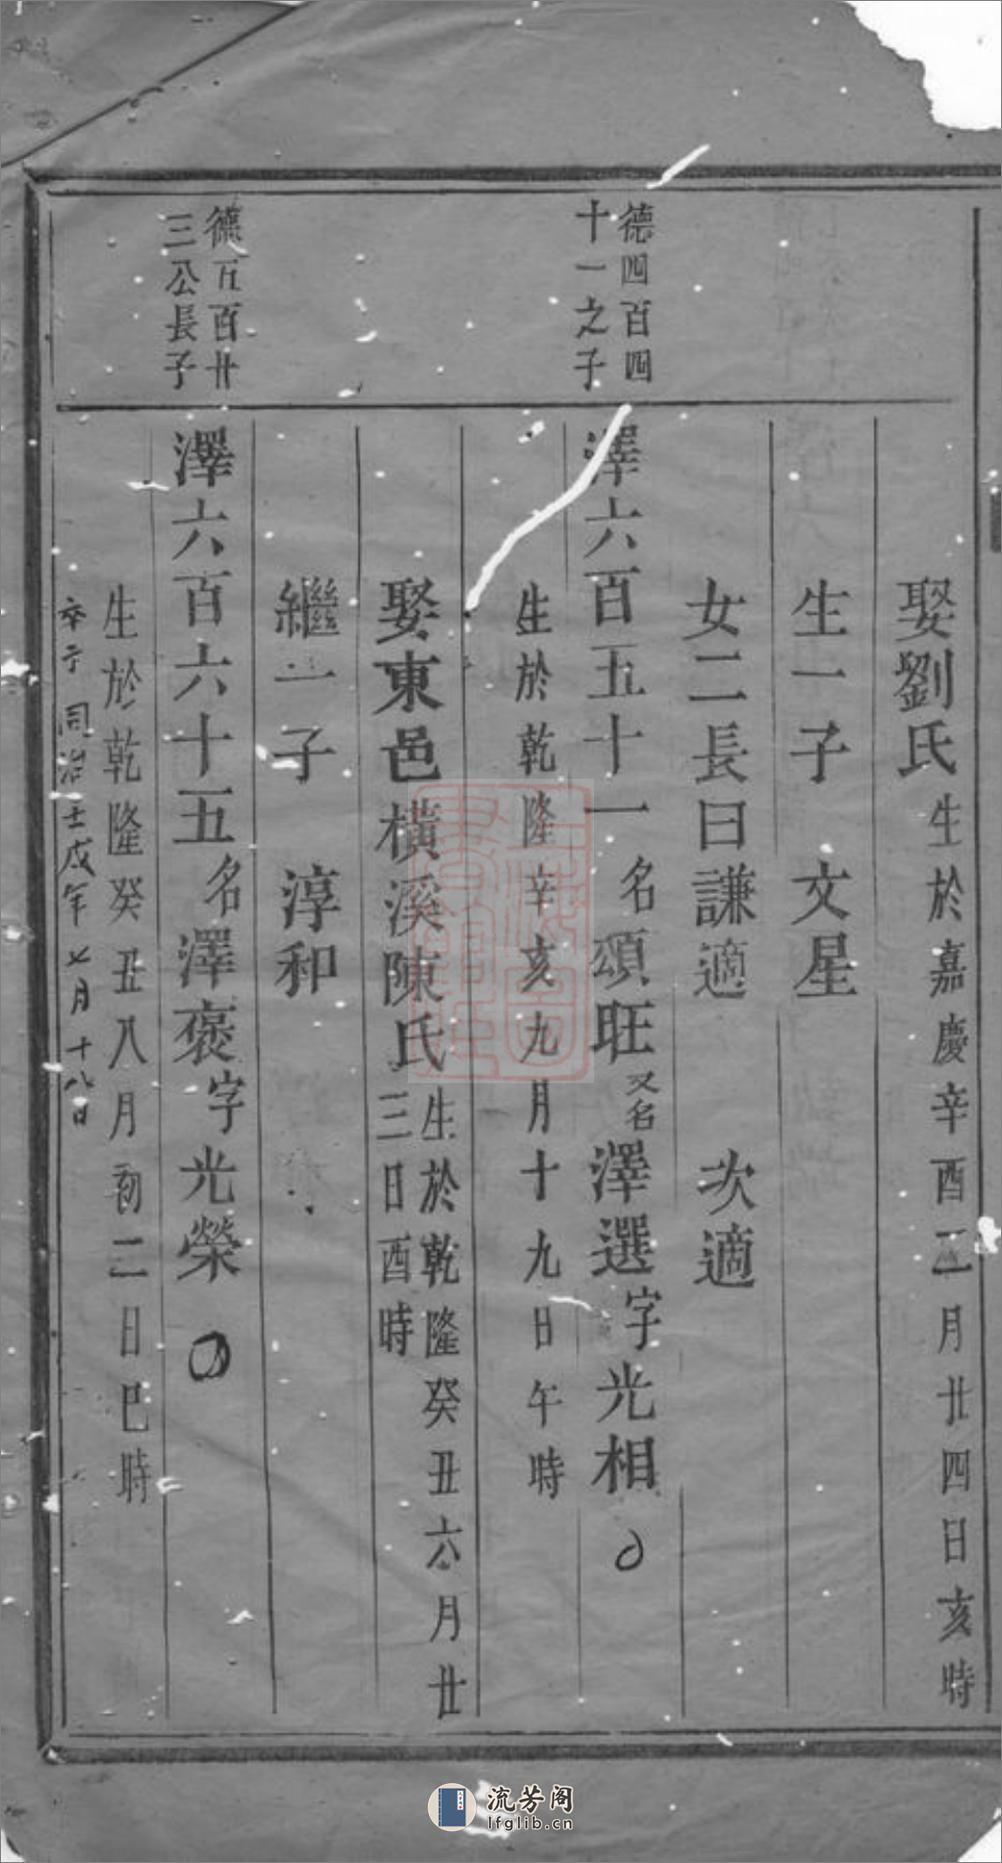 娶劉氏生於嘉慶辛酉三月廿四日亥時
生一子 文星
女二長曰謙適 次適
德四百四
十一之子
澤六百五十一名頌旺又名澤選字光相
生於乾隆辛亥九月十九日午時
娶東邑橫溪陳氏生於乾隆癸丑六月廿
三日酉時
繼一子 淳和
德五百廿
三公長子
澤六百六十五名澤褒字光榮
生於乾隆癸丑八月初二日巳時
卒于同治壬戌年七月十八日
流芳阁
lfglib.cn